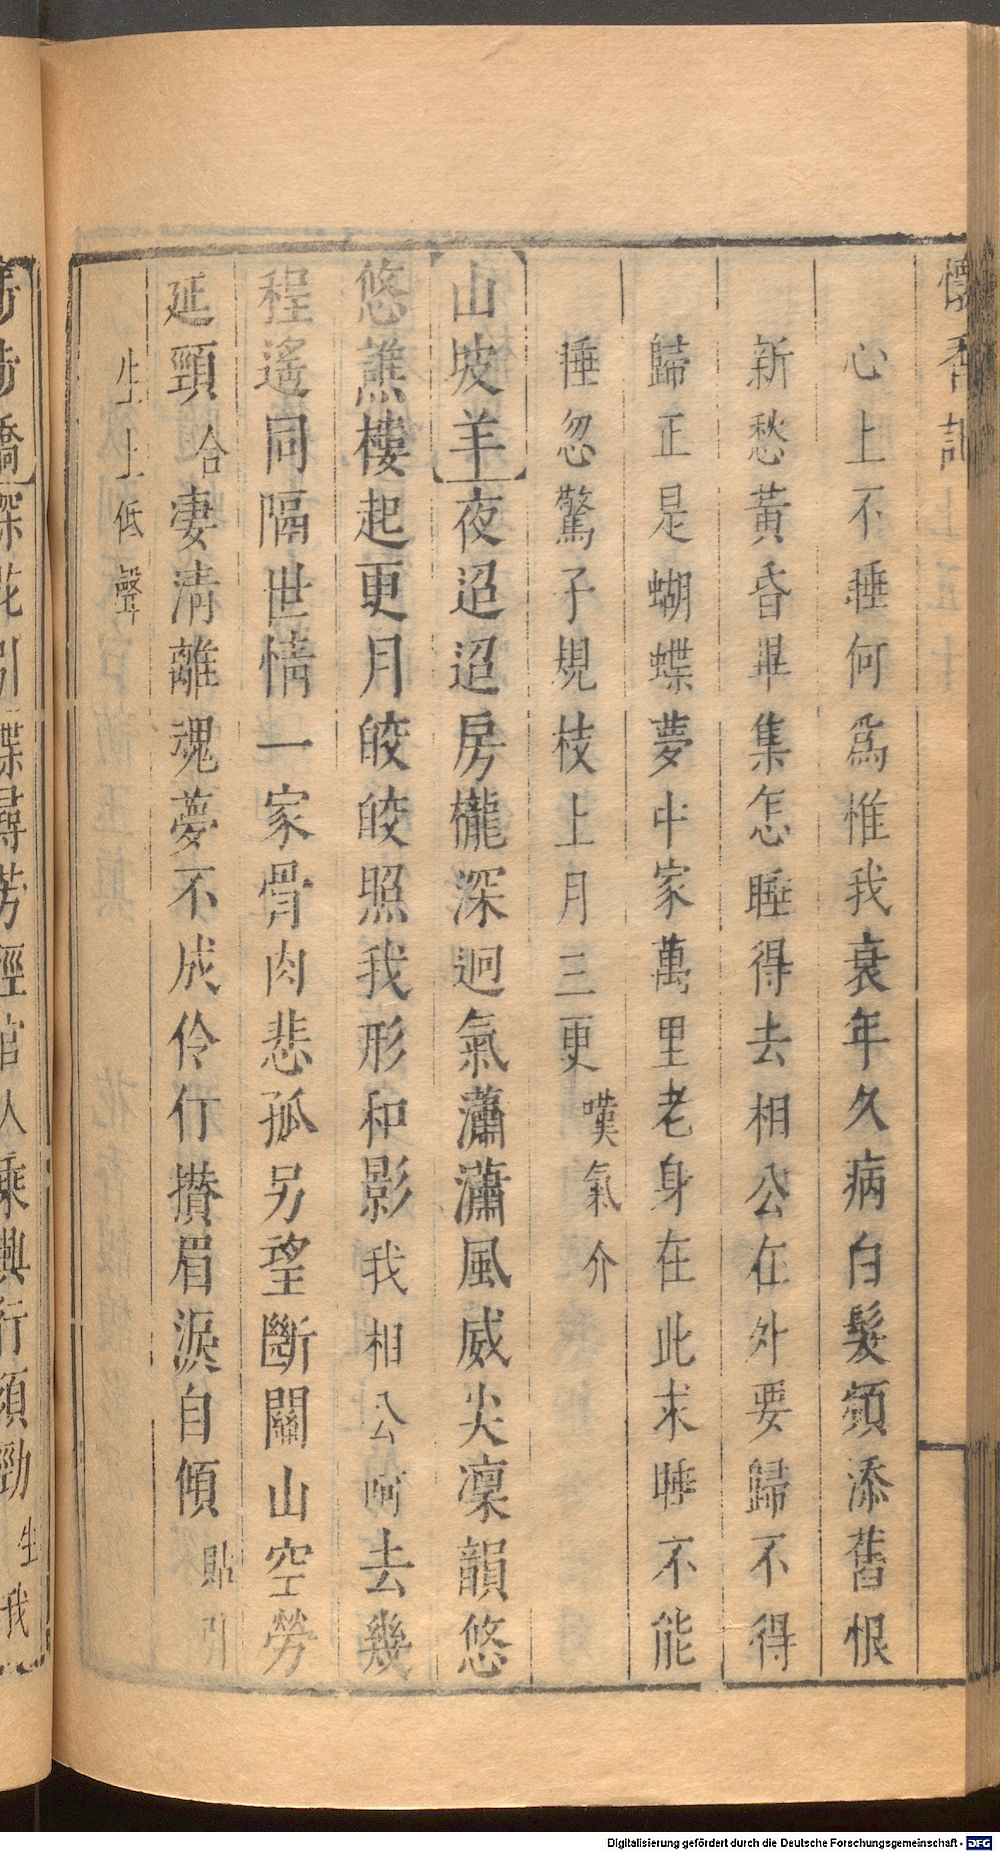 懷香記
心上不睡何爲惟我衰年久病白髮頻添舊恨
新愁黃昏畢集怎睡得去相公在外要歸不得
歸正是蝴蝶夢中家萬里老身在此求睡不能
捶忽驚子規枝上月三更 嘆氣介
山坡羊 夜迢迢房櫳深迥氣瀟瀟風威尖凜韻悠
悠譙樓起更月皎皎照我形和影我相公呵去幾
程遙同隔世情一家骨肉悲孤另望斷關山空勞
延頸 合 淒清離魂夢不成伶仃攢眉淚自傾 貼引
生上低聲
深花引蝶尋芳徑官人乘興行須勁 生 我
Digitalisierung gefördert durch die Deutsche Forschungsgemeinschaft - DFG